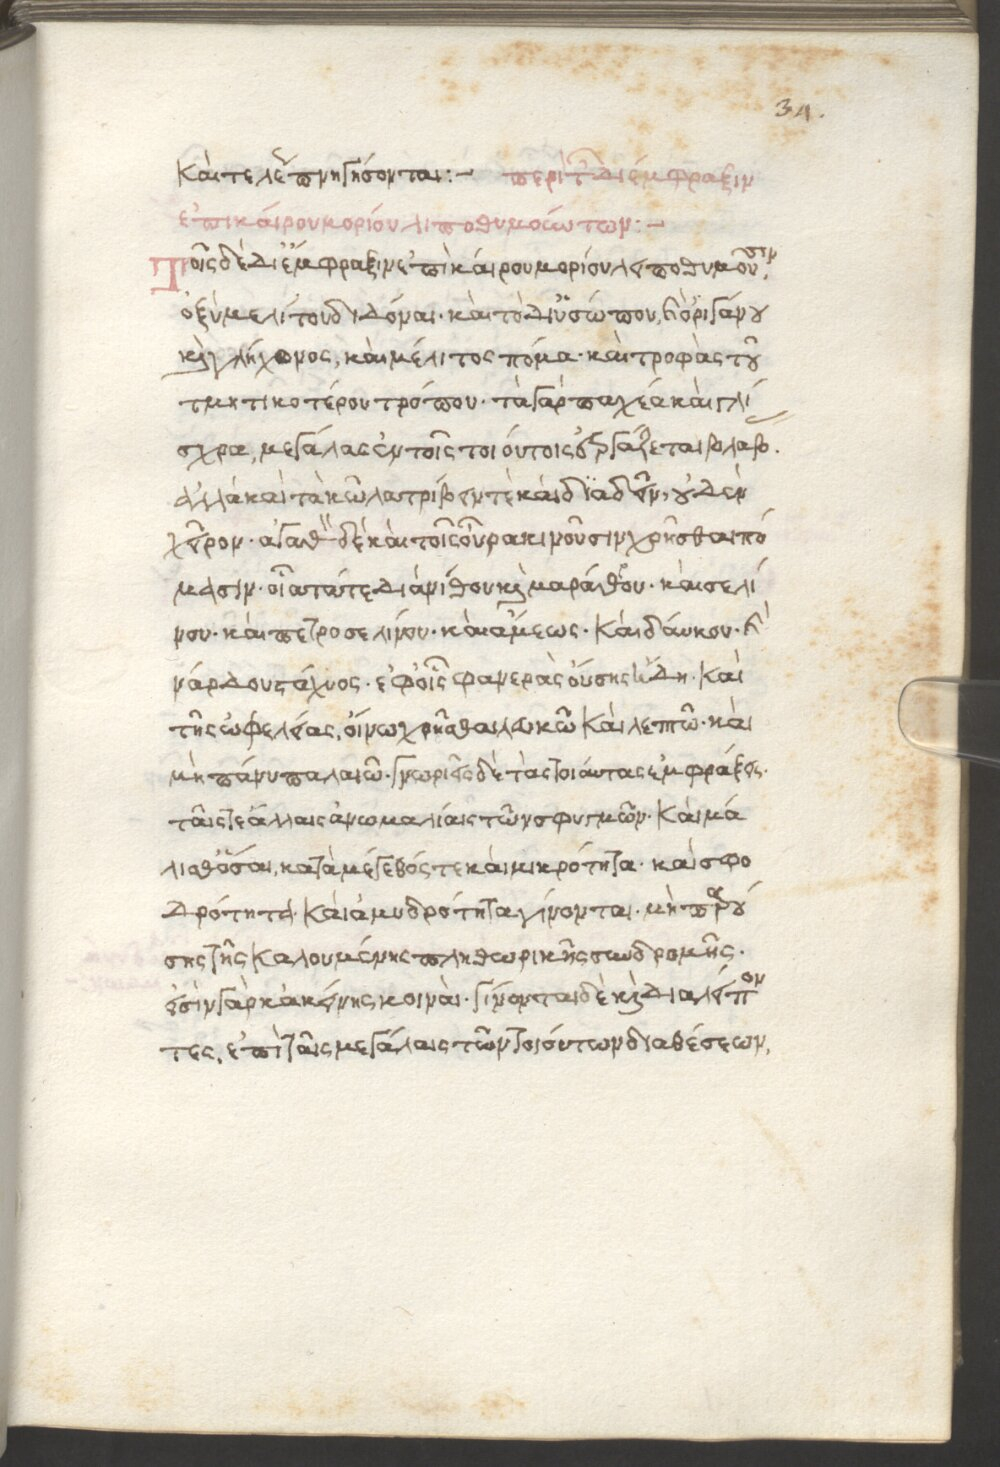 34.
καὶ τελέως πνιγήσονται:– περὶ τῶν δι' ἔμφραξιν
ἐπικαίρου μορίου λιποθυμούντων:–
Τοῖς δὲ δι' ἔμφραξιν ἐπικαίρου μορίου λειποθυμοῦσιν,
ὀξύμελί τε διδόναι· καὶ τὸ δι' ὑσώπου, καὶ ὀριγάνου
καὶ γλήχωνος, καὶ μέλιτος πόμα· καὶ τροφὰς τοῦ
τμητικοτέρου τρόπου· τὰ γὰρ παχέα καὶ γλί
σχρα, μεγάλας ἐν τοῖς τοιούτοις ἐργάζεται βλάβας.
ἀλλὰ καὶ τὰ κῶλα τρίβειν τὲ καὶ διαδεῖν, οὐδὲν
χεῖρον· ἀγαθὸν δὲ καὶ τοῖς οὖρα κινοῦσιν χρῆσθαι πό
μασιν· οἷα τῶτε δι' ἀνίθου καὶ μαράθου· καὶ σελί
νου· καὶ πετροσελίνου· καὶ ἄμεως· καὶ δαύκου· καὶ
νάρδου στάχυος· ἐφ' οἷς φανερᾶς οὔσης ἤδη· καὶ
τῆς ὠφελείας, οἴνω χρῆσθαι λευκῶ καὶ λεπτῶ· καὶ
μὴ πάνυ παλαιῶ· γνωριεῖς δὲ τὰς τοιαύτας ἐμφράξεις·
ταῖς τε ἄλλαις ἀνωμαλίαις τῶν σφυγμῶν· καὶ μά
λισθ' ὅσαι, κατὰ μέγεθός τε καὶ μικρότητα· καὶ σφο
δρότητα· καὶ ἀμυδρότητα γίνονται· μὴ παρού
σης τῆς καλουμένης πληθωρικῆς συνδρομῆς.
εἰσὶν γὰρ κἀκείνης κοιναί· γίνονται δὲ καὶ διαλείπον
τες, ἐπὶ ταῖς μεγάλαις τῶν τοιούτων διαθέσεων,